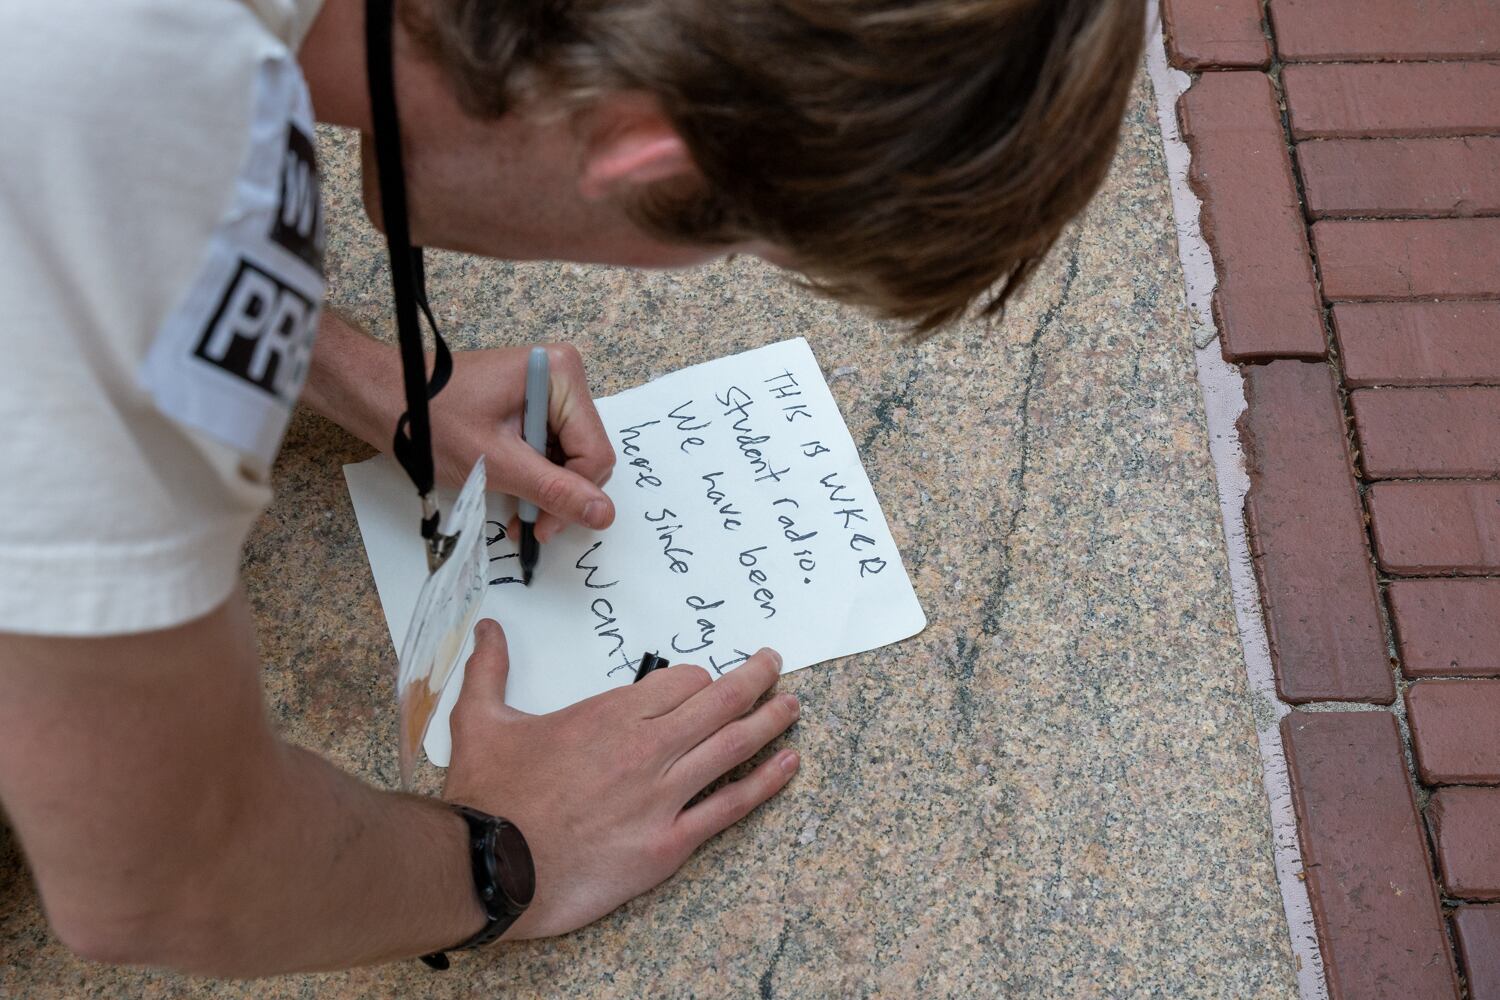 THIS IS WKCR
Student radio.
We have been
here since day 1
Want
PR